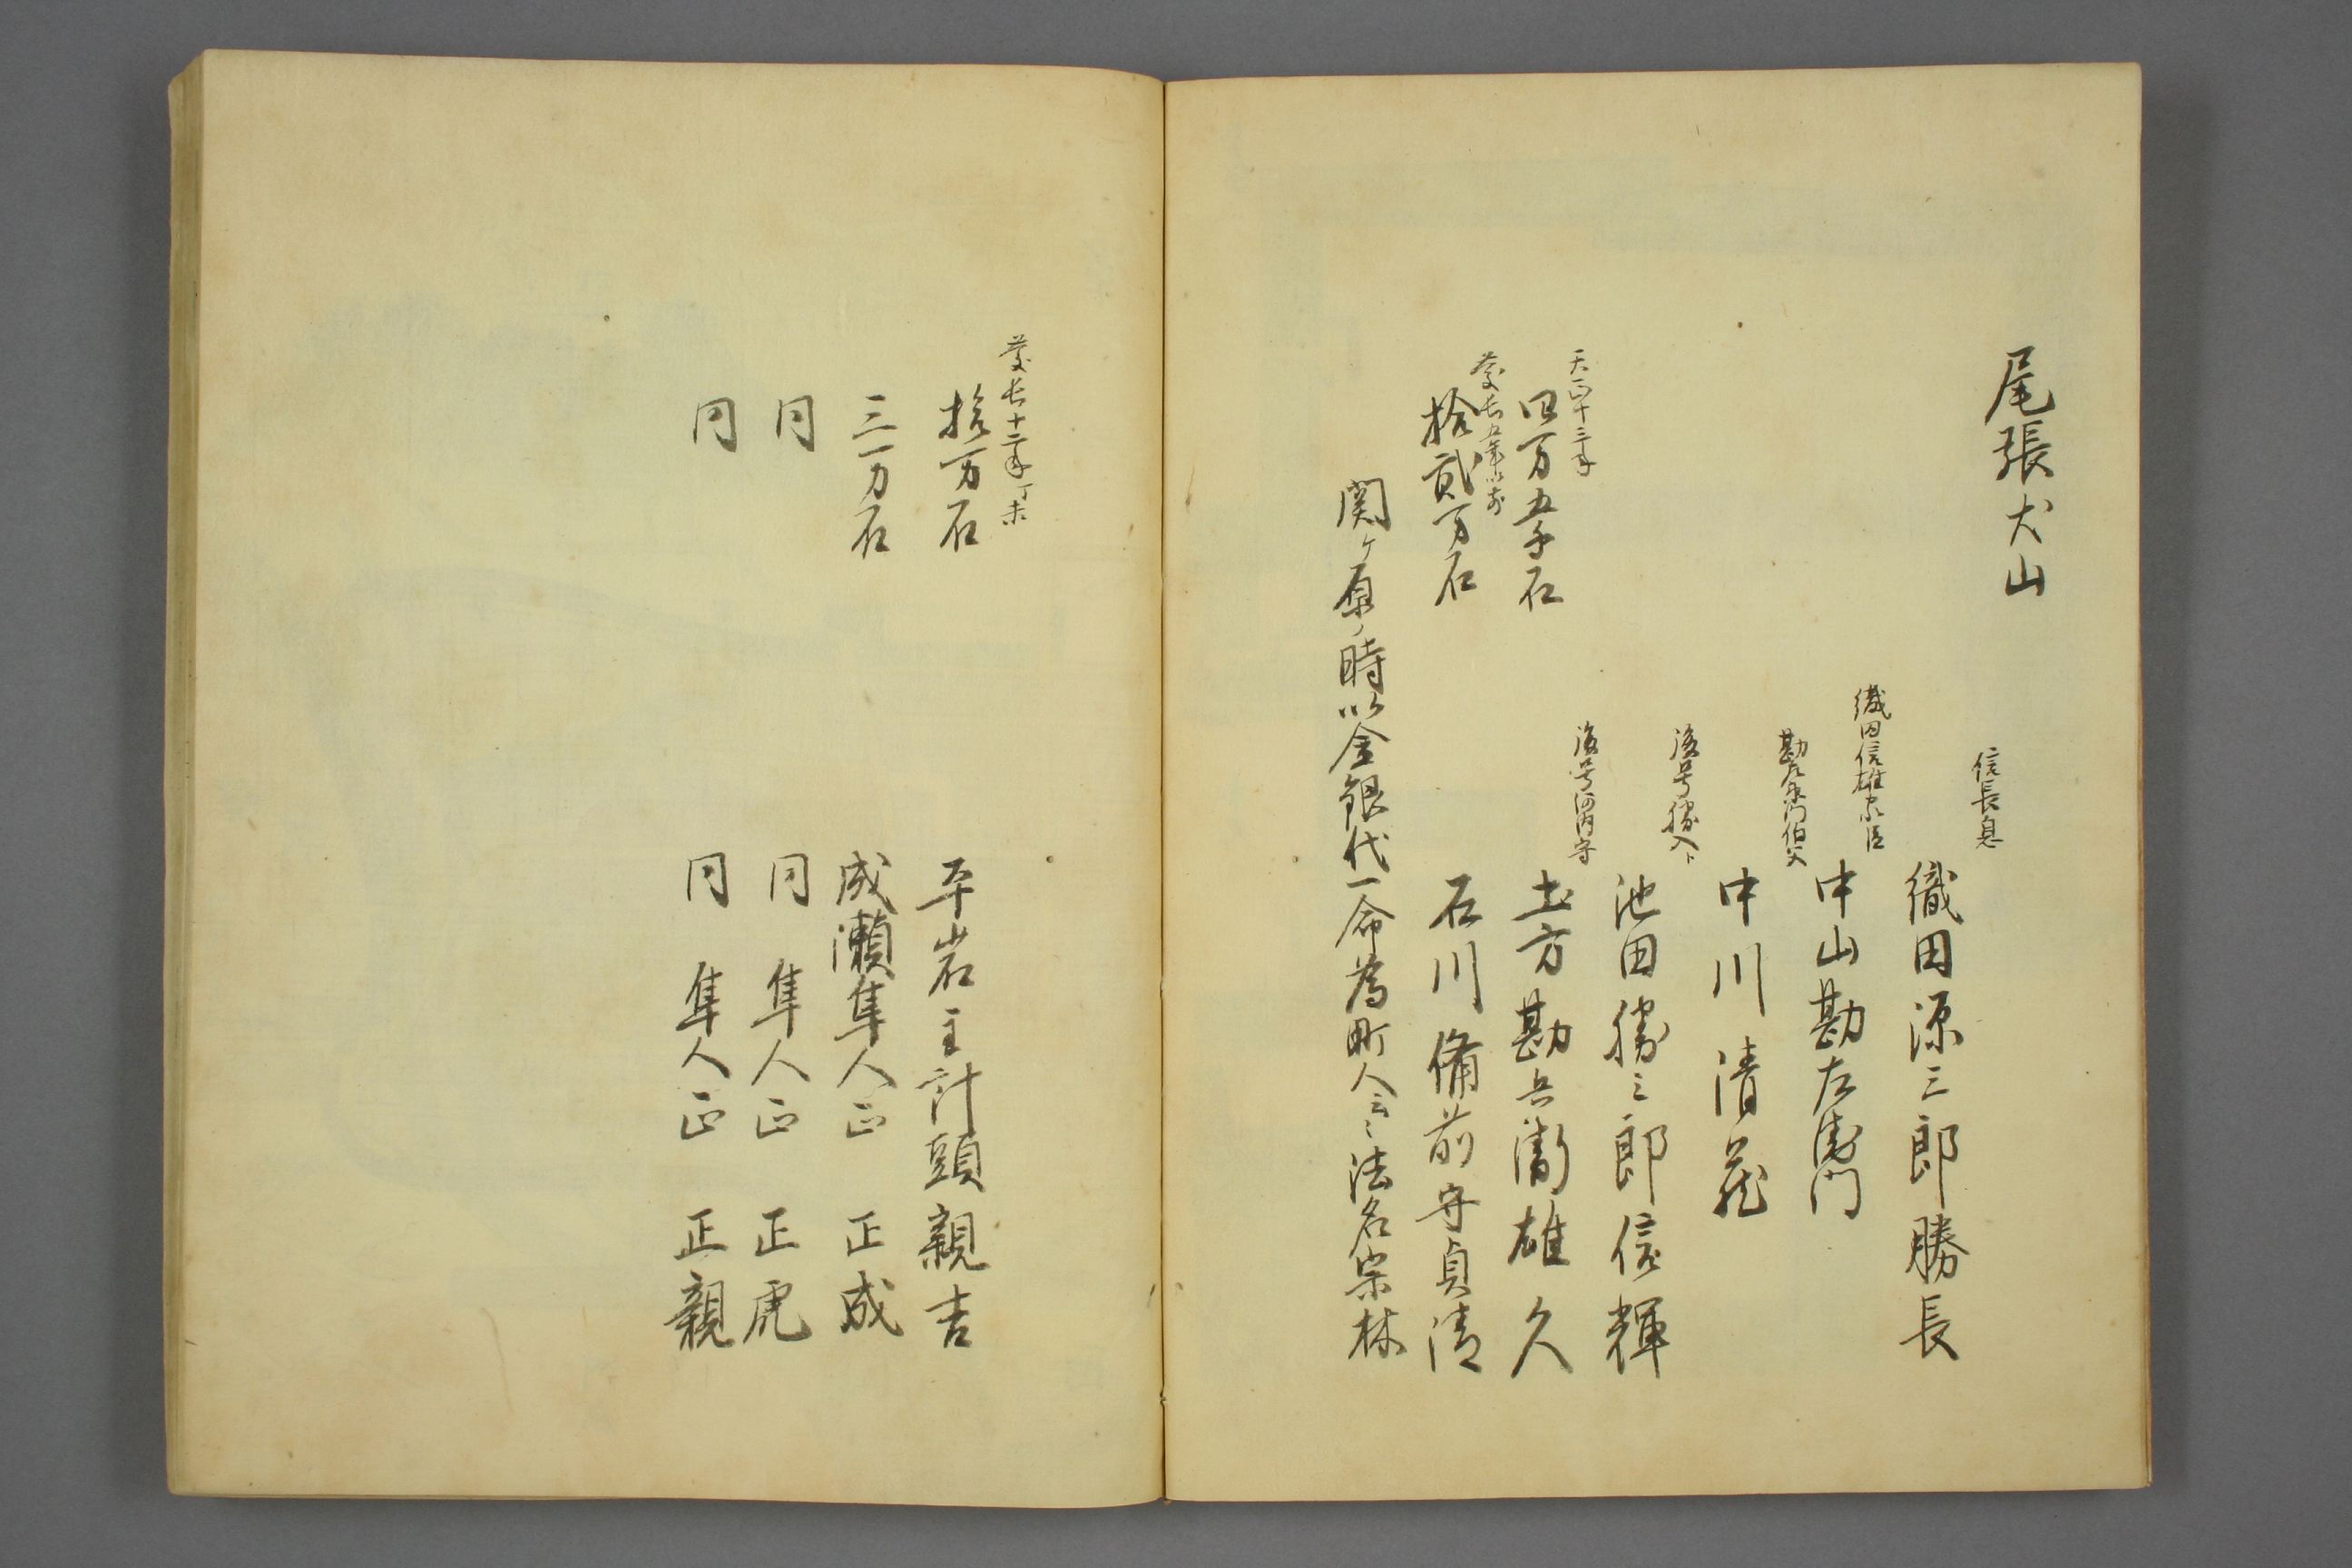 尾張犬山
信長息
織田源三郎勝長
織田信雄家臣
中山勘左衛門
勘左衛門伯父
中川清蔵
後号勝入ト
池田勝三郎信輝
天正十三年
後号河内守
四万五千石 土方勘兵衛雄久
慶長五年以前
拾貳万石 石川備前守貞清
関ヶ原ノ時以金銀代一命為町人云々法名宗林
慶長十二年丁未
拾万石 平岩主計頭親吉
三万石 成瀬隼人正 正成
同 同 隼人正 正虎
同 同 隼人正 正親